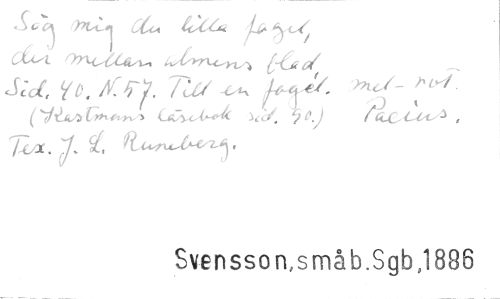 Säg mig du lilla fogel,
der mellan almens blad,
Sid. 40. N. 57. Till en fogel. met-not.
(Kastmans läsebok sid. 90.) Pacius.
Tex. J. L. Runeberg.
Svensson,småb.Sgb,1886